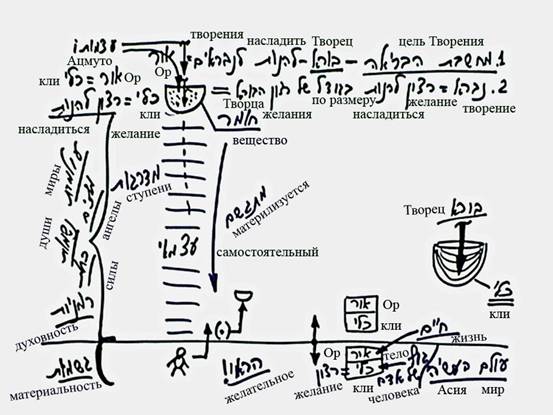 творения насладить Творец цель Творения
עצמותו
Ацмуто
אור
Ор
1. מחשבת הבריאה – בורא – להנות לנבראים =
кли Ор
כלי = אור
כלי = רצון להנות
насладиться желание
кли
2. נברא = רצון להנות בגודל של רצון הבורא =
Творца желания по размеру насладиться желание творение
חומר
вещество
миры
עולמות
ангелы
מלאכים
души
נשמות
силы
כוחות
מדרגות
ступени
מתגשם
материлизуется
עצמאי
самостоятельный
Творец
בורא
כלי
кли
רוחניות
духовность
גשמיות
материальность
הראוי
желательное
אור Ор
כלי кли
חיים
жизнь
Ор אור тело גוף
желание רצון = כלי של אדם
кли человека
עולם העשיה
Асия мир